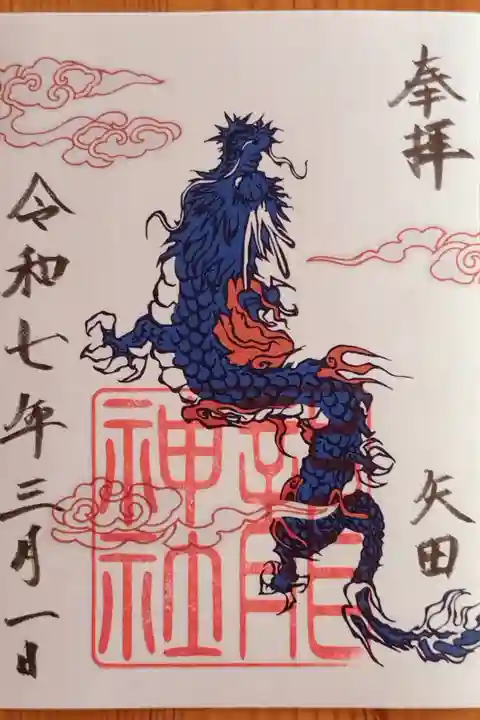 奉拝
矢田
神社
令和七年三月一日